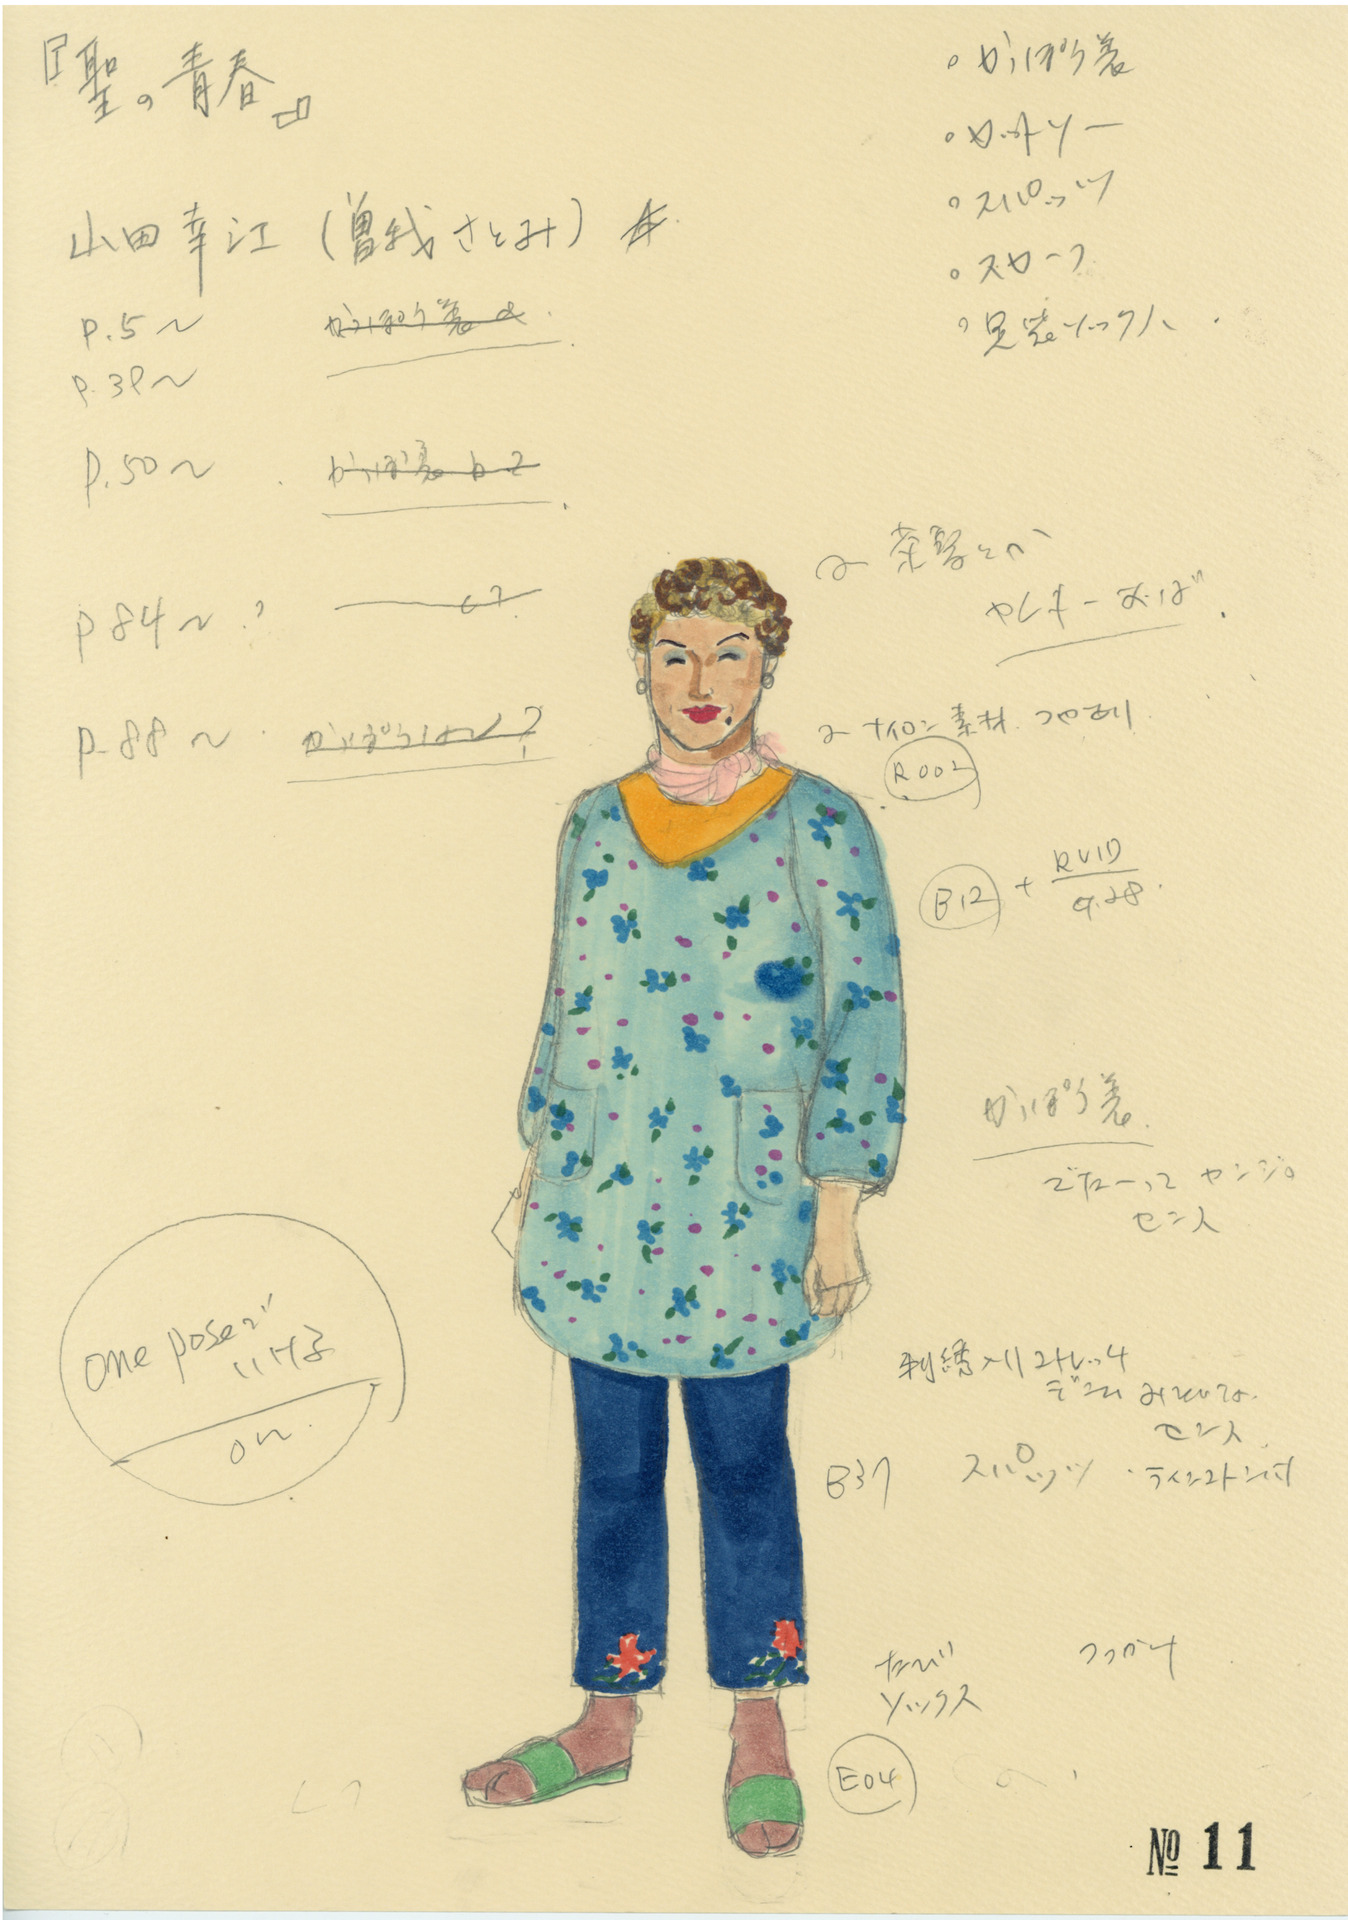 『聖の青春』
山田幸江（曽我さとみ）
P.5〜 かっぽう着 a
P.39〜
P.50〜 かっぽう着 b?
P84〜?
P.88〜 かっぽう着なし?
・かっぽう着
・カットソー
・スパッツ
・スカーフ
・足袋ソックス
茶髪とか
ナイロン素材 つやあり
R002
B12 + 
かっぽう着
センス
刺繍入りストレッチ
デニムみたいな
センス
B37 スパッツ ・ラインストーン付
one poseで
いける
on.
たび つっかけ
ソックス
E04
№ 11